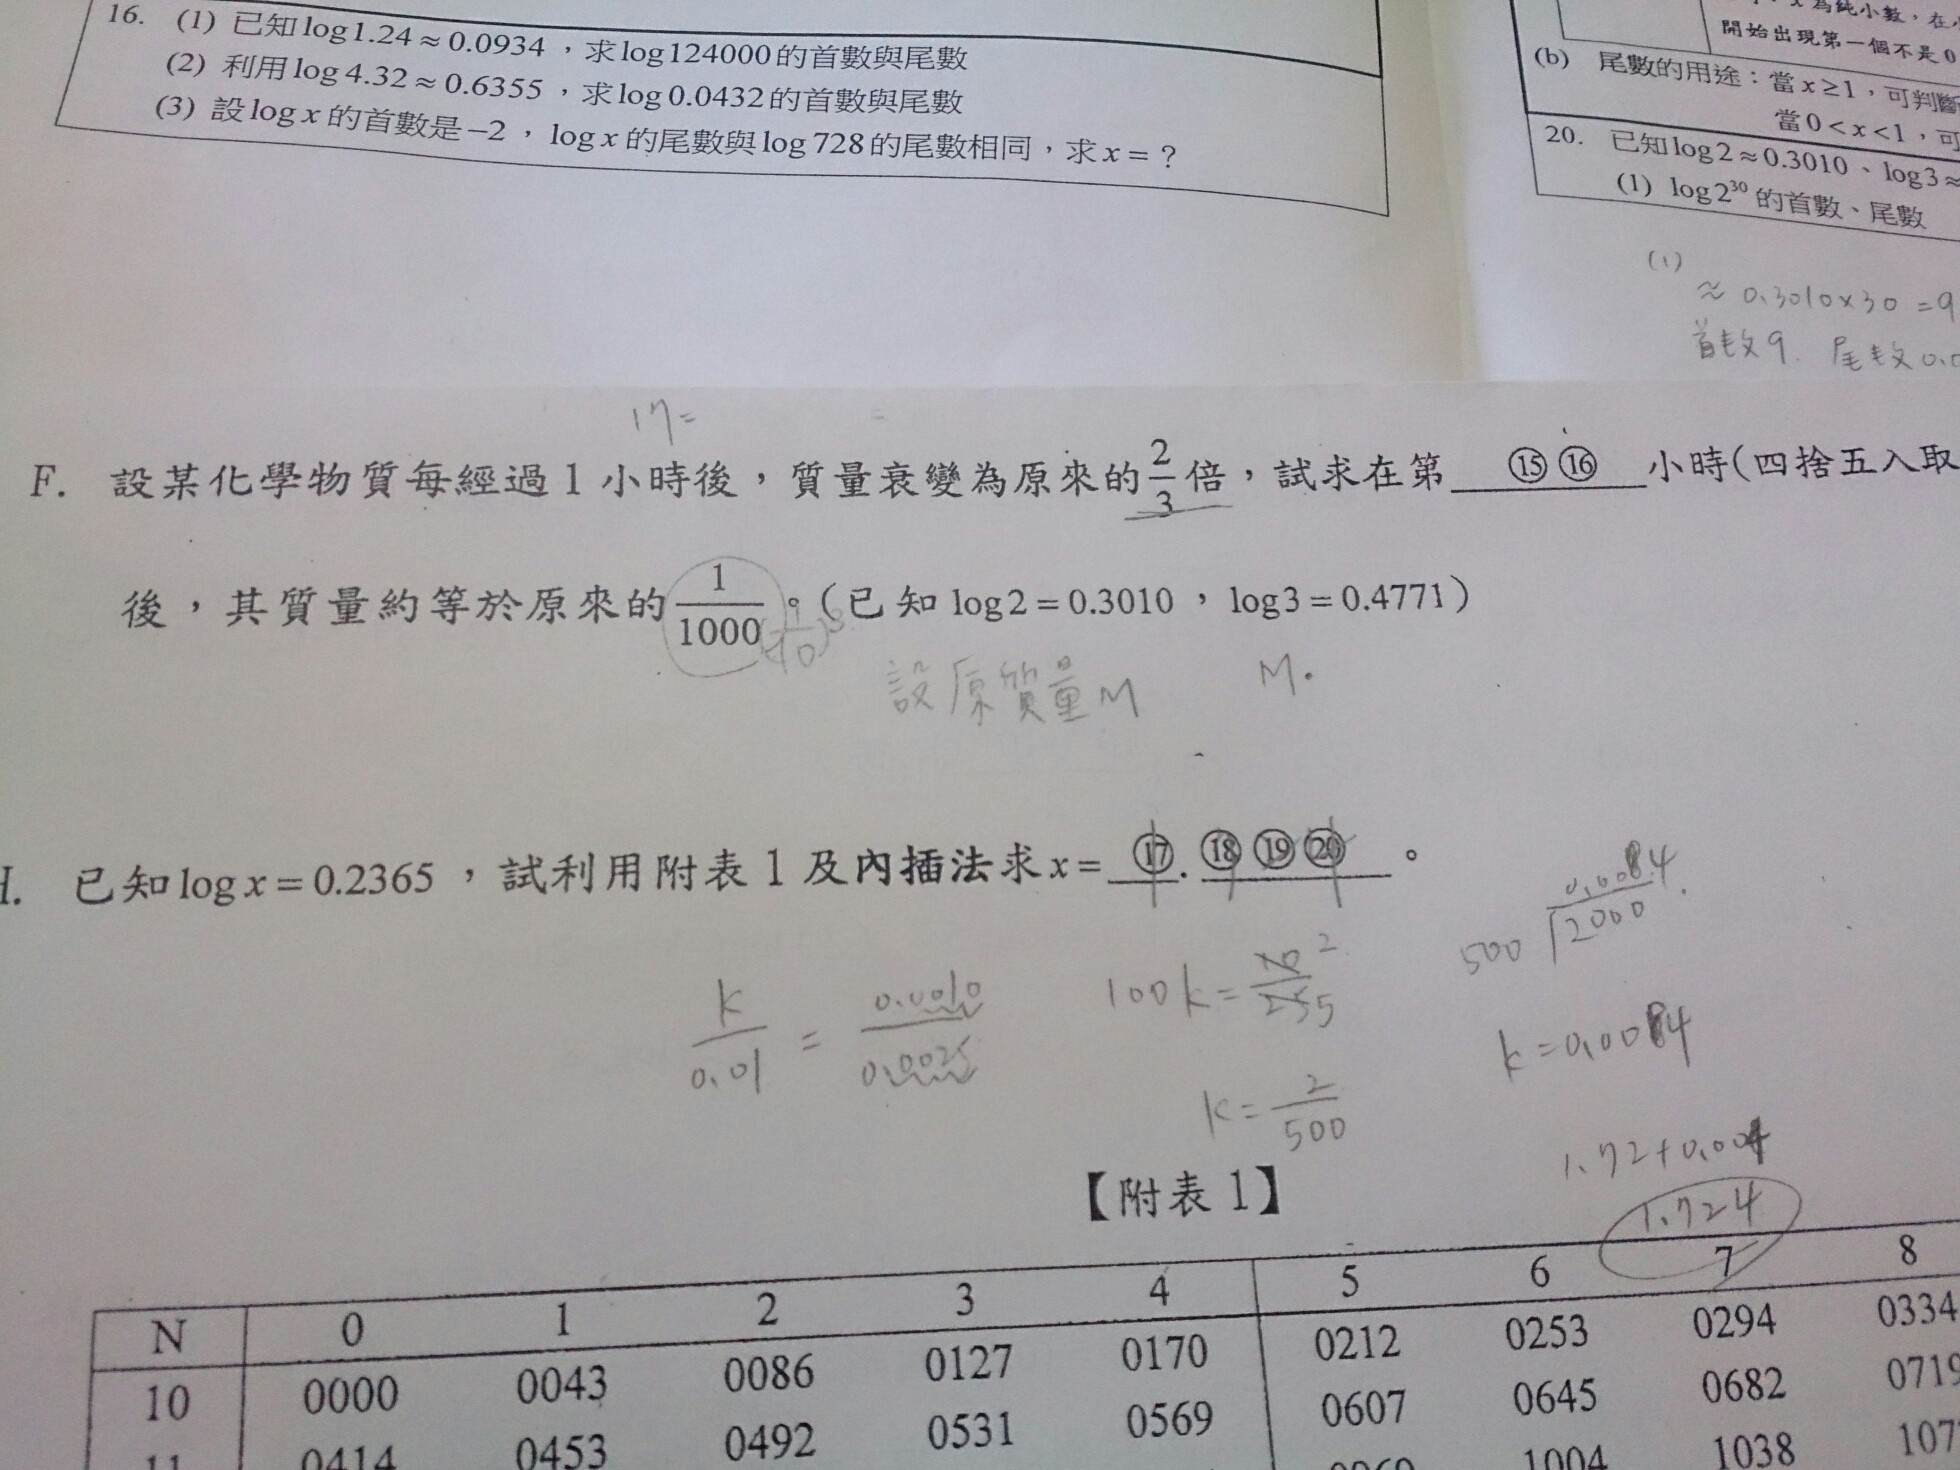 16. (1) 已知log1.24≈0.0934，求log124000的首數與尾數
(2) 利用log4.32≈0.6355，求log0.0432的首數與尾數
(3) 設logx的首數是−2，logx的尾數與log728的尾數相同，求x=？
x為純小數，在
開始出現第一個不是0
(b) 尾數的用途：當x≥1，可判斷
當0<x<1，可
20. 已知log2≈0.3010、log3≈
(1) log2³⁰的首數、尾數
(1)
≈ 0.3010×30 = 9
首数9. 尾数0.0
17=
F. 設某化學物質每經過1小時後，質量衰變為原來的2/3倍，試求在第 ⑮⑯ 小時(四捨五入取
後，其質量約等於原來的1/1000。(已知log2=0.3010，log3=0.4771)
設原質量M M.
已知logx=0.2365，試利用附表1及內插法求x= ⑰.⑱⑲⑳。
k/0.01 = 0.0010/0.0025
100k = 10/25 2/5
500 2000
k=0.0084
k=2/500
1.72+0.004
1.724
【附表1】
N 0 1 2 3 4 5 6 7 8
10 0000 0043 0086 0127 0170 0212 0253 0294 0334
11 0414 0453 0492 0531 0569 0607 0645 0682 0719
1004 1038 107